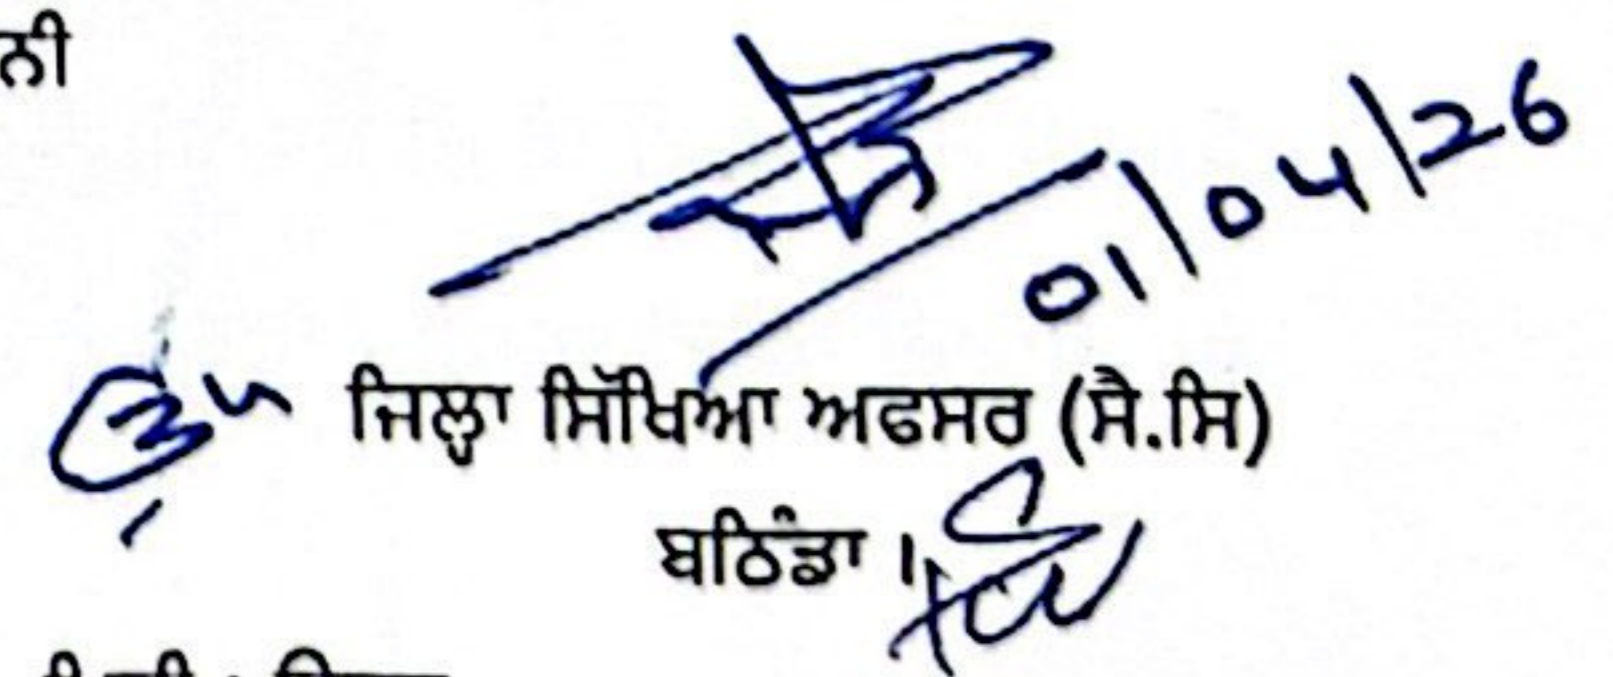 ਨੀ
01/04/26
ਉਪ ਜਿਲ੍ਹਾ ਸਿੱਖਿਆ ਅਫਸਰ (ਸੈ.ਸਿ)
ਬਠਿੰਡਾ ।